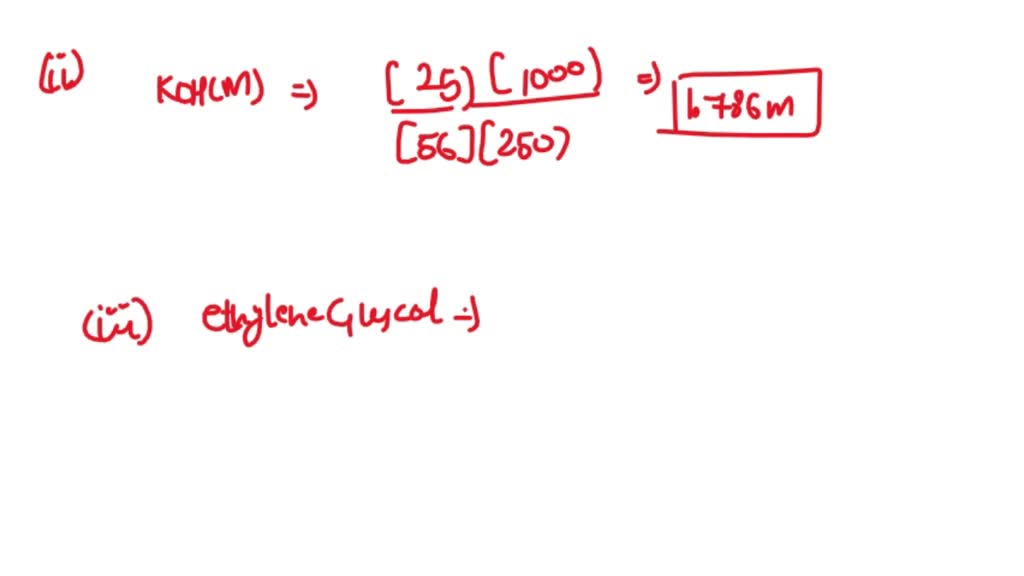 (ii) KOH(M) => [25)[1000) / [56][250) => 1.786m
(iii) ethylene Glycol =>